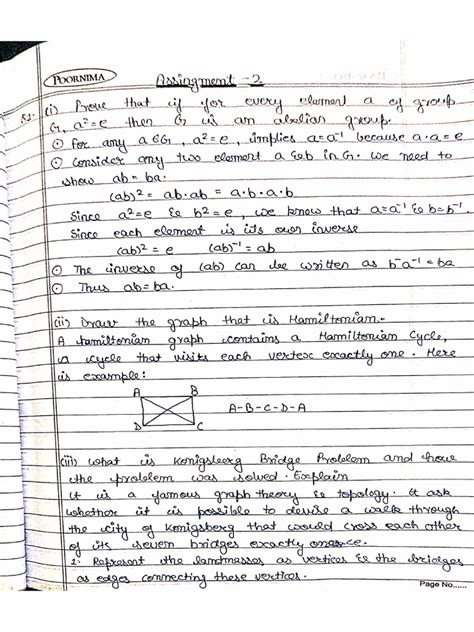 POORNIMA
Assingment - 2
S2. (i) Prove that if for every element a of group
G, a² = e then G is an abelian group.
⊙ For any a ∈ G, a² = e, implies a = a⁻¹ because a·a = e
⊙ Consider any two element a & b in G. We need to
show ab = ba.
(ab)² = ab·ab = a·b·a·b
Since a² = e & b² = e, we know that a = a⁻¹ & b = b⁻¹
Since each element is its own inverse
(ab)² = e (ab)⁻¹ = ab
⊙ The inverse of (ab) can be written as b⁻a⁻¹ = ba
⊙ Thus ab = ba.
(ii) Draw the graph that is Hamiltonian.
A Hamiltonian graph contains a Hamiltonian Cycle,
a cycle that visits each vertex exactly one. Here
is example:
A B
A-B-C-D-A
D C
(iii) What is Konigsberg Bridge Problem and how
the problem was solved. Explain
It is a famous graph theory & topology. It ask
whether it is possible to devise a walk through
the city of Konigsberg that would cross each other
of its seven bridges exactly once.
1. Represent the landmasses as vertices & the bridges
as edges connecting these vertices.
Page No......